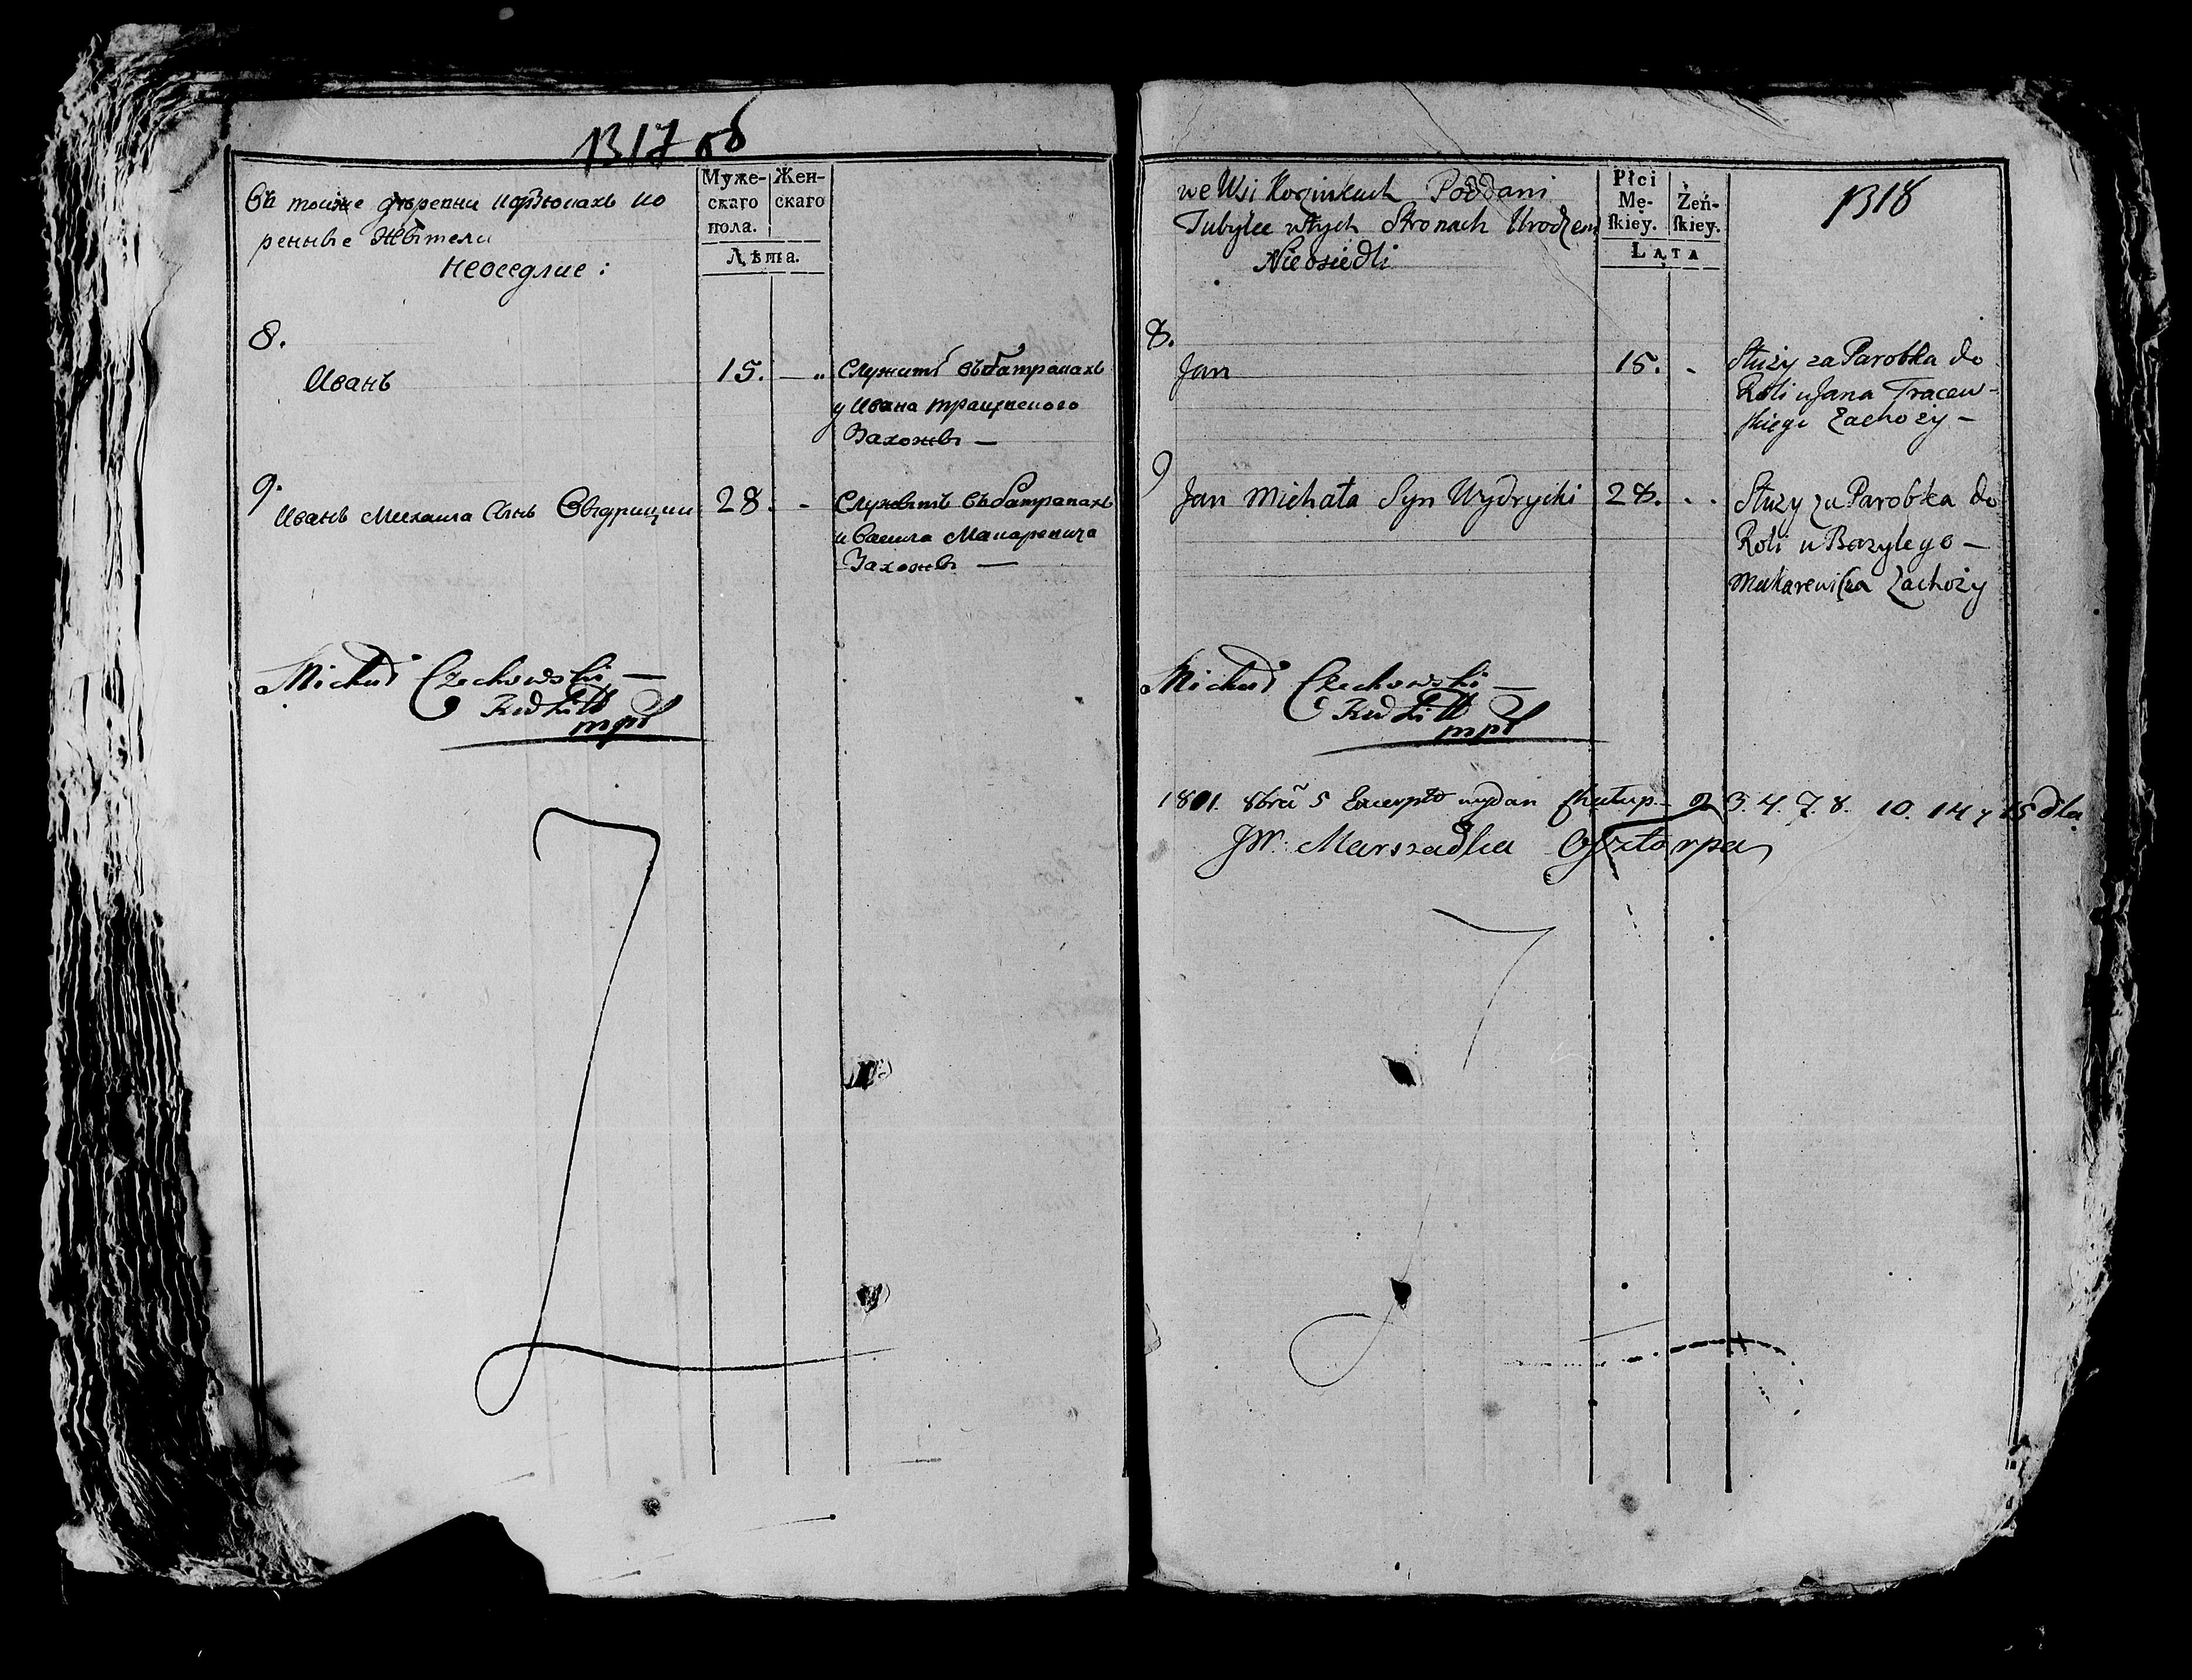 1317 об
Въ тойже деревни
ренные Жители
неоседлие:
Муже-
скаго
пола.
Жен-
скаго
Лѣта.
8.
Иванъ
15. — „
Служитъ въ батракахъ
у Ивана
Захожъ —
9.
Иванъ Михаила Сынъ
28. -
Служитъ въ батракахъ
у Василя Макаревича
Захожъ —
Michał Czechowski —
mpł
we Wsi Poddani
Tubylce w tych Stronach Urodzeni
Nieosiedli
Płci
Mę-
ſkiey.
Żeń-
ſkiey.
Lata
1318
8.
Jan
15. -
Służy za Parobka do
Roli u Jana Tracew-
skiego Zachoży —
9
Jan Michała Syn Wydrycki
28. . .
Służy za Parobka do
Roli u Bazylego —
Makarewicza Zachoży
Michał Czechowski —
mpł
1801. 8bra 5 Excerpt wydan 2 3. 4. 7. 8. 10. 14 y 15 dla
JW. Marszadka